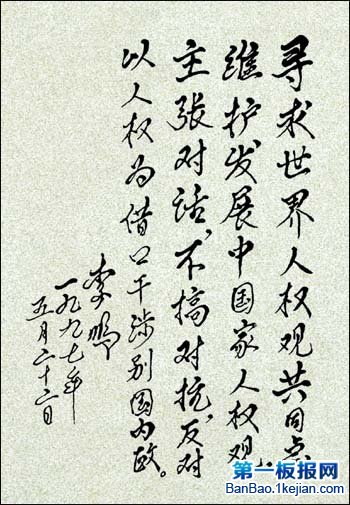 寻求世界人权观共同点
维护发展中国家人权观.
主张对话,不搞对抗,反对
以人权为借口干涉别国内政。
李鹏
一九九七年
五月二十二日
第一板报网
BanBao.1kejian.com